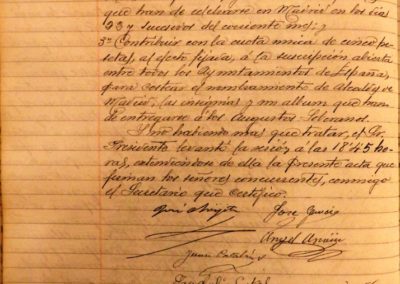 que han de celebrarse en Madrid en los días
23 y sucesivos del corriente mes; y
3º Contribuir con la cuota unica de cinco pe-
setas, al efecto fijada, á la suscripción abierta
entre todos los Ayuntamientos de España,
para costear el nombramiento de Alcalde
Madrid, las insignias y un album que han
de entregarse á los Augustos Soberanos.
Y no habiendo mas que tratar, el Sr.
Presidente levantó la sesión á las 18'45 ho-
ras, extendiéndose de ella la presente acta que
firman los señores concurrentes, conmigo
el Secretario que certifico.
José
Jose Garcia
Angel
Juan